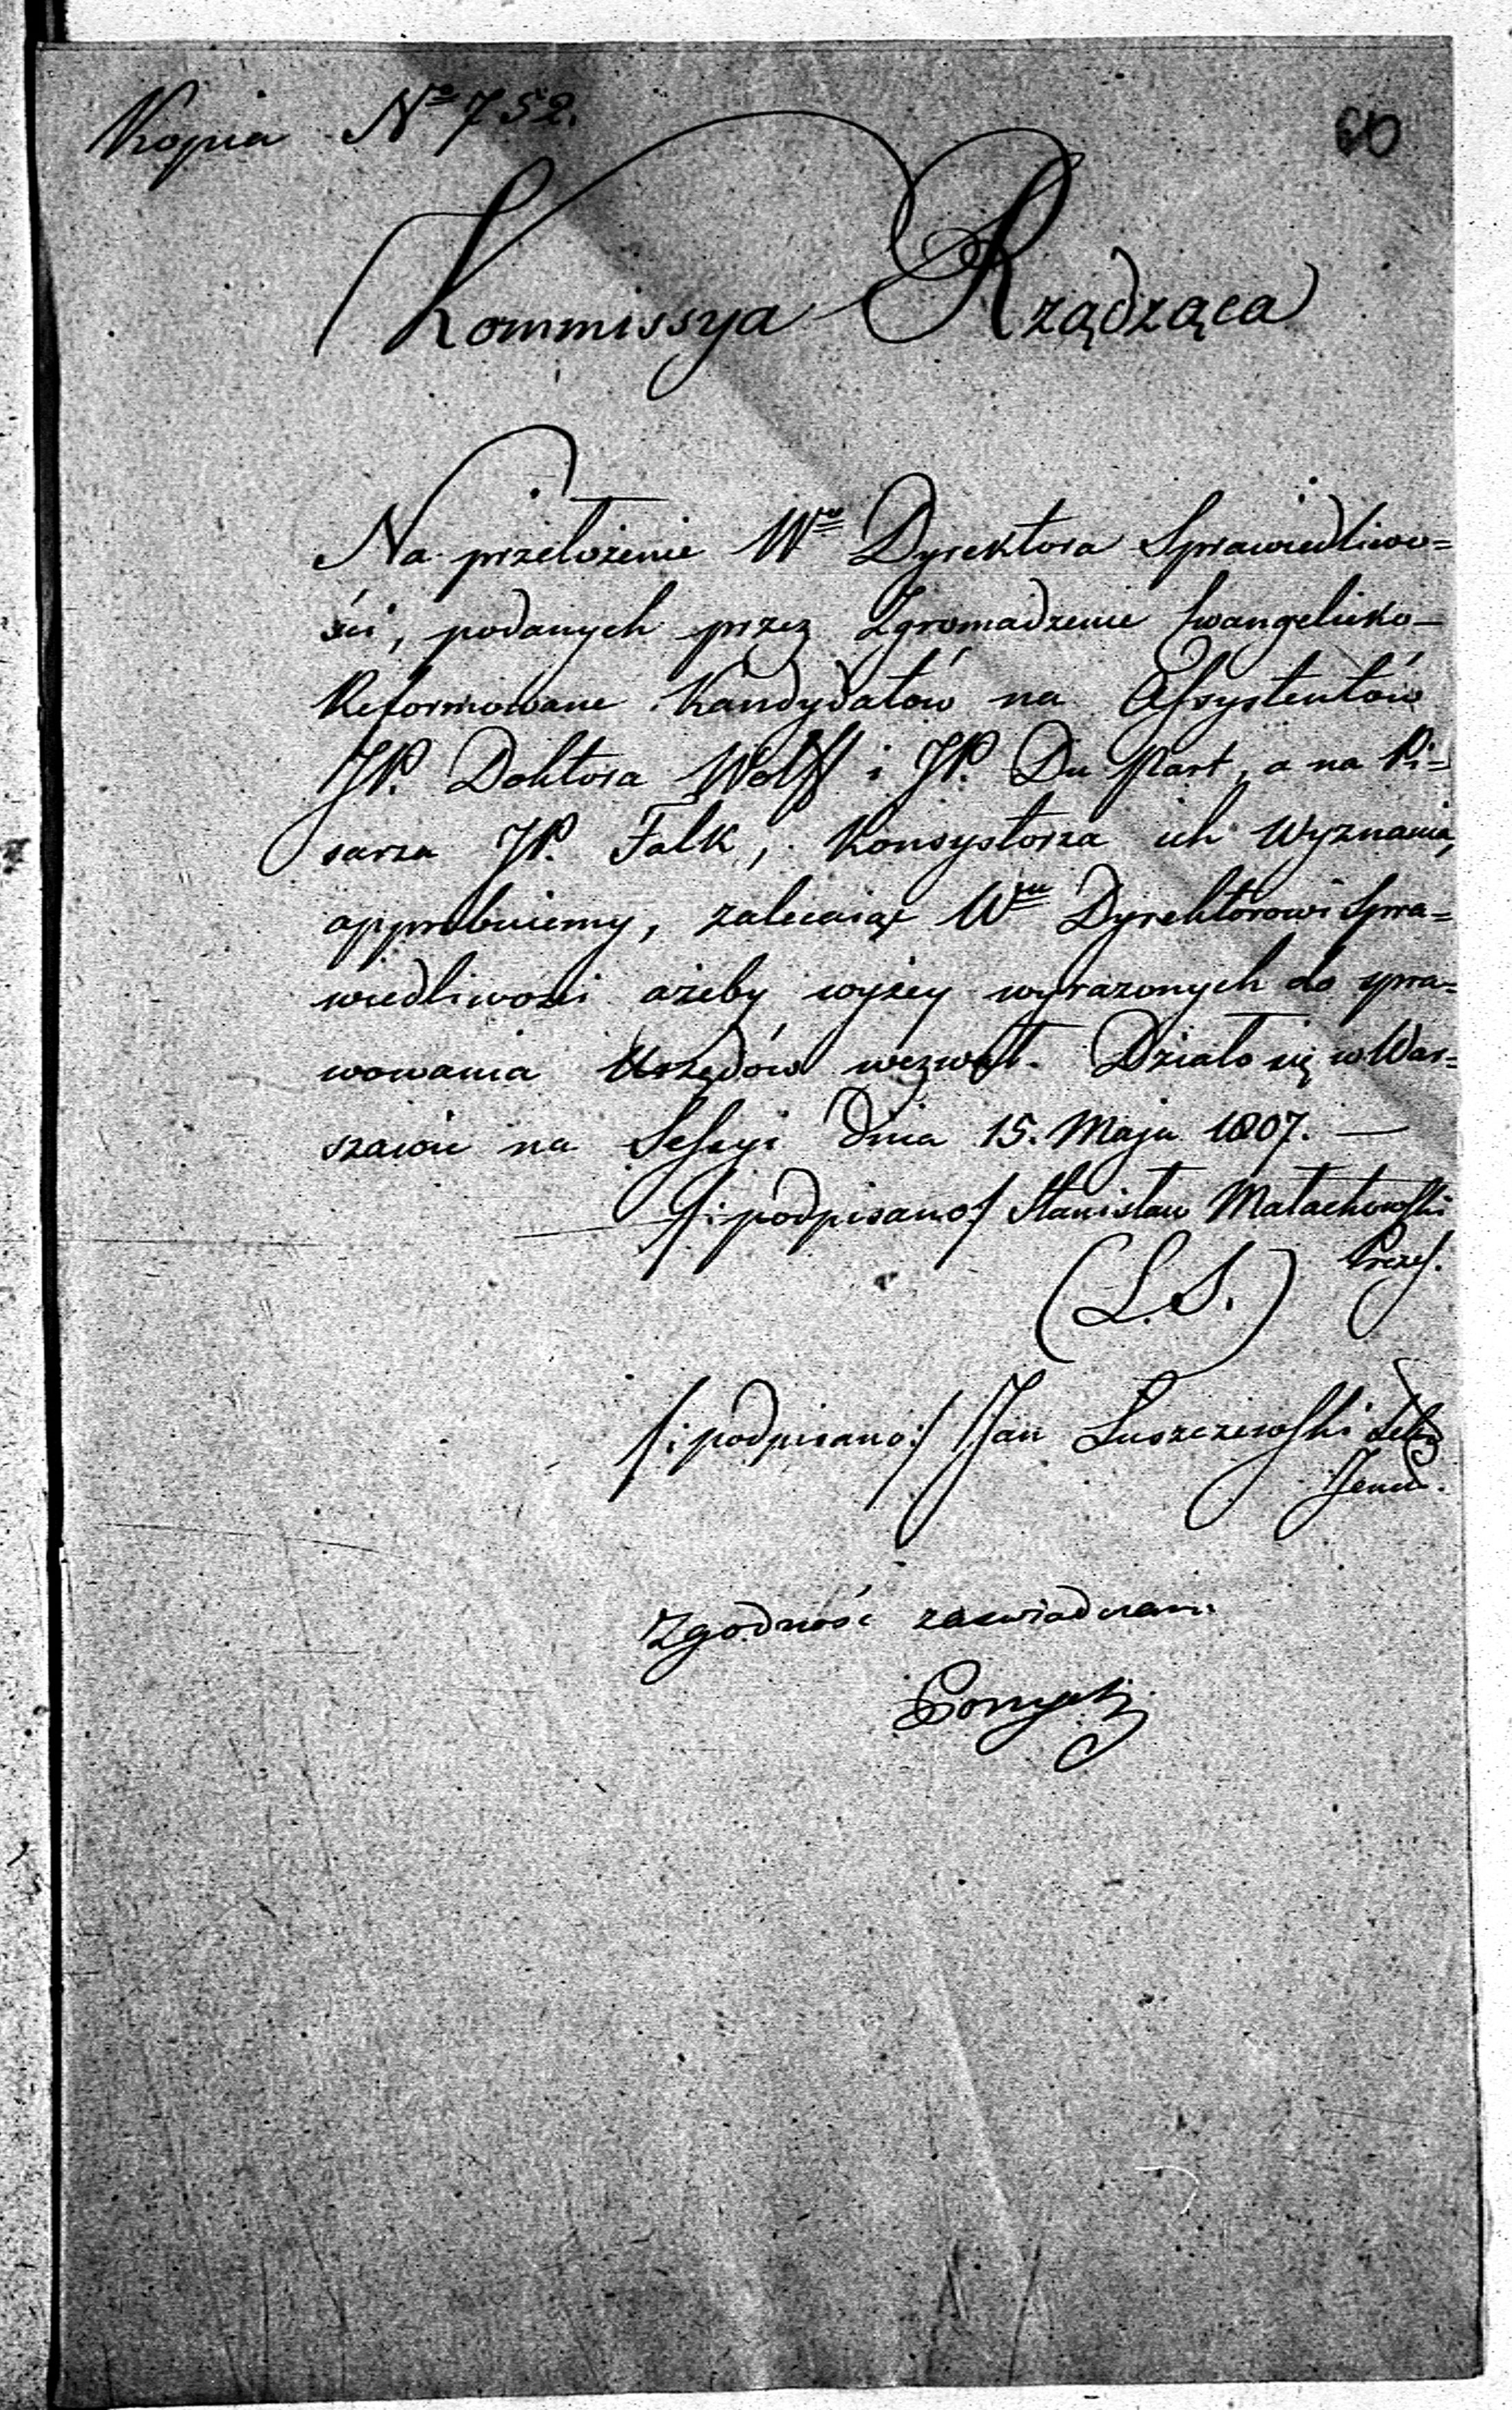 Kopia No 752.
60
Kommissya Rządząca
Na przełożenie Wgo Dyrektora Sprawiedliwo=
ści, podanych przez Zgromadzenie Ewangelicko-
Reformowane Kandydatów na Assystentów
JP. Doktora Wolff i JP. Du Part, a na Pi=
sarza JP. Falk, Konsystorza ich Wyznania,
approbuiemy, zalecaiąc Wmu Dyrektorowi Spra=
wiedliwości ażeby wyżey wyrażonych do spra=
wowania Urzędów wezwał. Działo się w War=
szawie na Sessyi Dnia 15. Maja 1807. —
/:podpisano:/ Stanisław Małachowski
Prezes.
(L.S.)
/:podpisano:/ Jan Łuszczewski Sekr.
Jener.
Zgodność zaświadczam